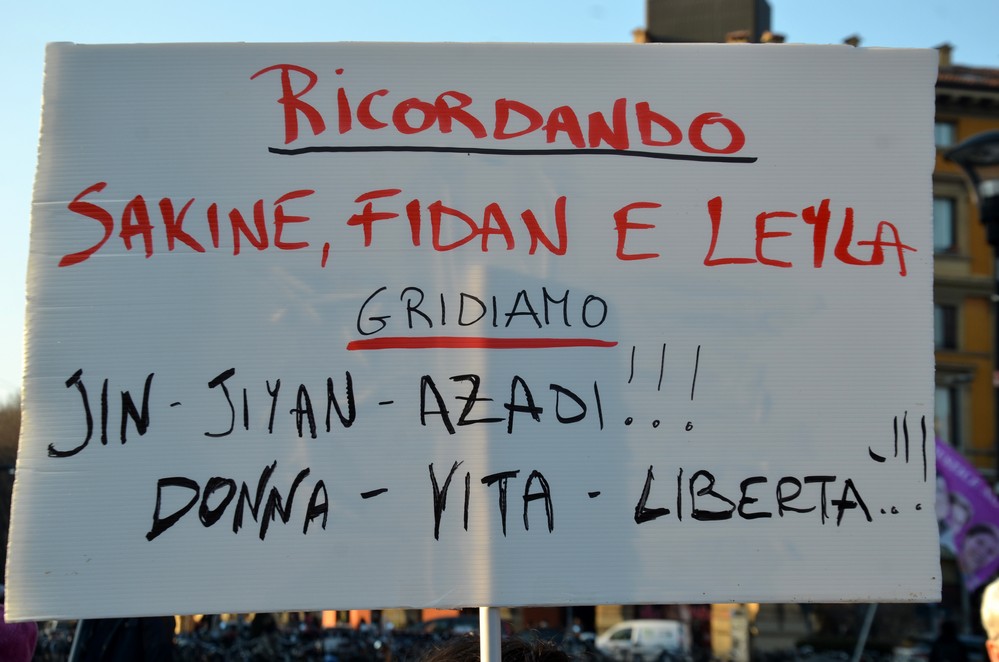 RICORDANDO
SAKINE, FIDAN E LEYLA
GRIDIAMO
JIN - JIYAN - AZADI!!!
DONNA - VITA - LIBERTÀ!!!